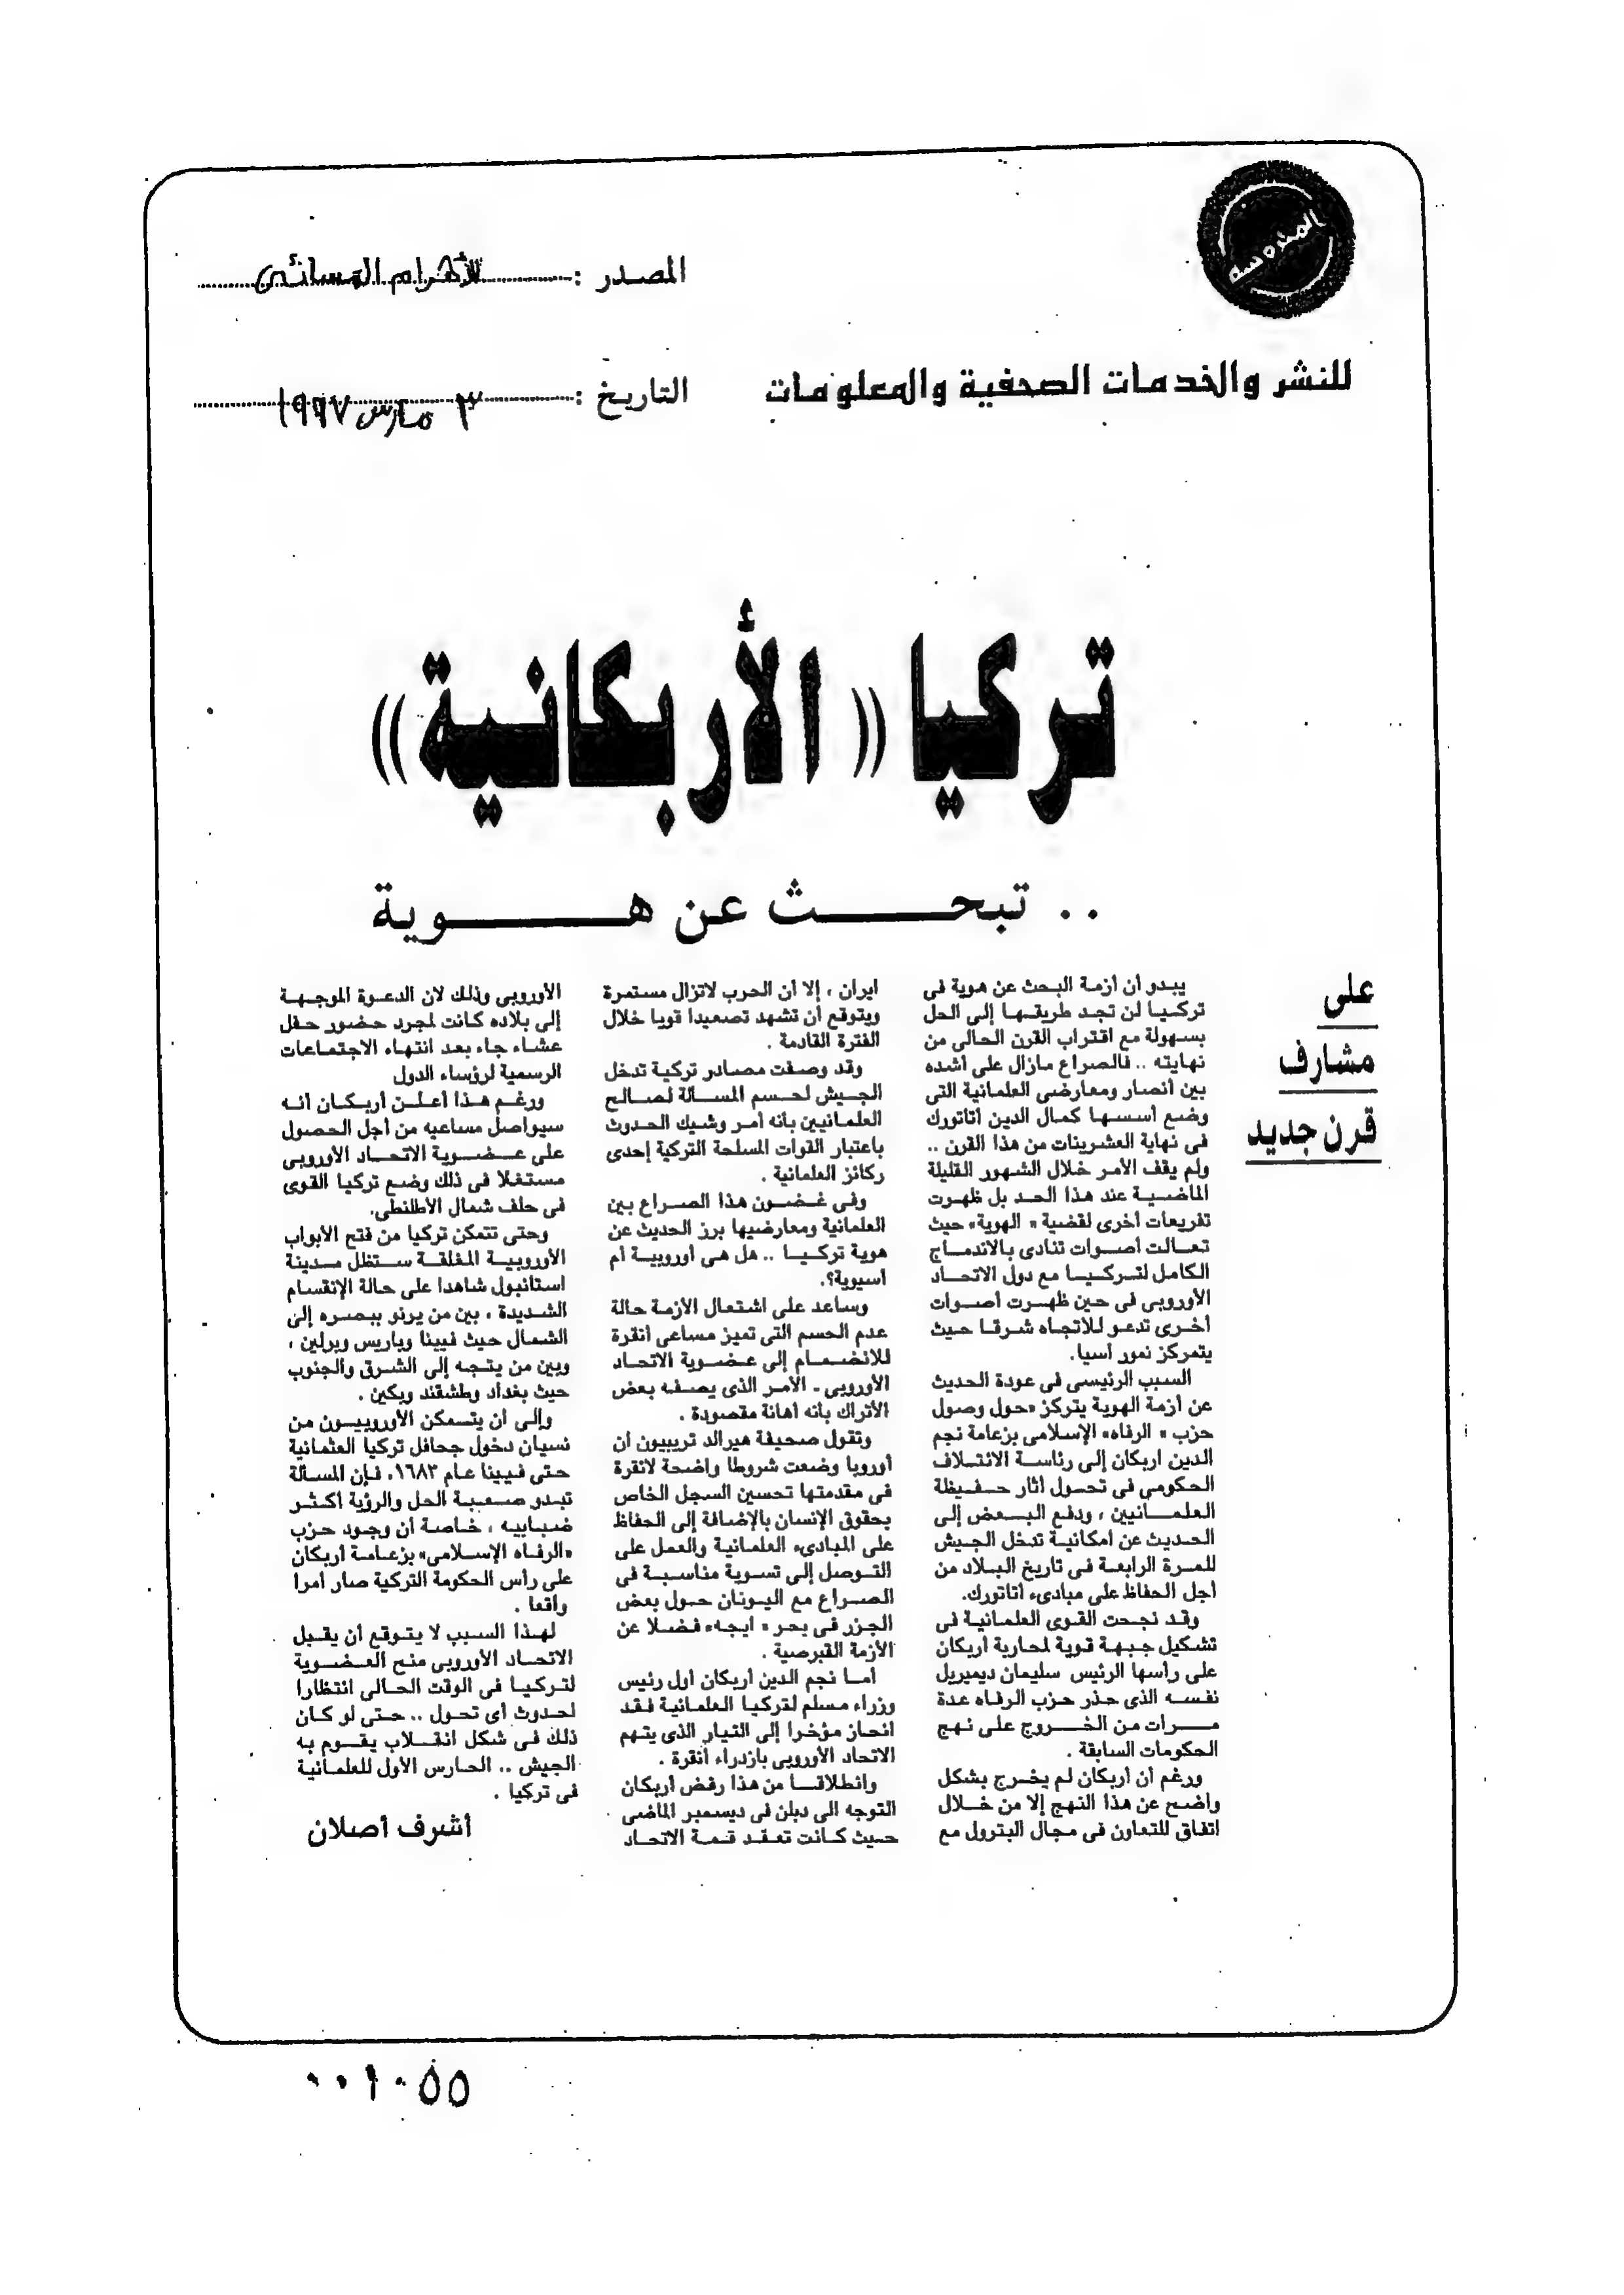 المحروسة
المصدر : الأهرام المسائى
للنشر والخدمات الصحفية والمعلومات
التاريخ : ٣ مارس ١٩٩٧
تركيا «الأربكانية»
.. تبحث عن هوية
على
مشارف
قرن جديد
يبدو أن أزمة البحث عن هوية فى
تركيا لن تجد طريقها إلى الحل
بسهولة مع اقتراب القرن الحالى من
نهايته .. فالصراع مازال على أشده
بين أنصار ومعارضى العلمانية التى
وضع أسسها كمال الدين أتاتورك
فى نهاية العشرينات من هذا القرن ..
ولم يقف الأمر خلال الشهور القليلة
الماضية عند هذا الحد بل ظهرت
تفريعات أخرى لقضية « الهوية» حيث
تعالت أصوات تنادى بالاندماج
الكامل لتركيا مع دول الاتحاد
الأوروبى فى حين ظهرت أصوات
أخرى تدعو للاتجاه شرقا حيث
يتمركز نمور آسيا.
السبب الرئيسى فى عودة الحديث
عن أزمة الهوية يتركز «حول وصول
حزب « الرفاه» الإسلامى بزعامة نجم
الدين اربكان إلى رئاسة الائتلاف
الحكومى فى تحول أثار حفيظة
العلمانيين ، ودفع البعض إلى
الحديث عن امكانية تدخل الجيش
للمرة الرابعة فى تاريخ البلاد من
أجل الحفاظ على مبادىء أتاتورك.
وقد نجحت القوى العلمانية فى
تشكيل جبهة قوية لمحاربة أربكان
على رأسها الرئيس سليمان ديميريل
نفسه الذى حذر حزب الرفاه عدة
مرات من الخروج على نهج
الحكومات السابقة .
ورغم أن أربكان لم يخرج بشكل
واضح عن هذا النهج إلا من خلال
اتفاق للتعاون فى مجال البترول مع
ايران ، إلا أن الحرب لاتزال مستمرة
ويتوقع أن تشهد تصعيدا قويا خلال
الفترة القادمة .
وقد وصفت مصادر تركية تدخل
الجيش لحسم المسألة لصالح
العلمانيين بأنه أمر وشيك الحدوث
باعتبار القوات المسلحة التركية إحدى
ركائز العلمانية .
وفى غضون هذا الصراع بين
العلمانية ومعارضيها برز الحديث عن
هوية تركيا .. هل هى أوروبية أم
أسيوية؟.
وساعد على اشتعال الأزمة حالة
عدم الحسم التى تميز مساعى أنقرة
للانضمام إلى عضوية الاتحاد
الأوروبى - الأمر الذى يصفه بعض
الأتراك بأنه أهانة مقصودة .
وتقول صحيفة هيرالد تريبيون أن
أوروبا وضعت شروطا واضحة لانقرة
فى مقدمتها تحسين السجل الخاص
بحقوق الإنسان بالإضافة إلى الحفاظ
على المبادىء العلمانية والعمل على
التوصل إلى تسوية مناسبة فى
الصراع مع اليونان حول بعض
الجزر فى بحر « ايجه» فضلا عن
الأزمة القبرصية .
أما نجم الدين أربكان أول رئيس
وزراء مسلم لتركيا العلمانية فقد
انحاز مؤخرا إلى التيار الذى يتهم
الاتحاد الأوروبى بازدراء أنقرة .
وانطلاقا من هذا رفض أربكان
التوجه الى دبلن فى ديسمبر الماضى
حيث كانت تعقد قمة الاتحاد
الأوروبى وذلك لان الدعوة الموجهة
إلى بلاده كانت لمجرد حضور حفل
عشاء جاء بعد انتهاء الاجتماعات
الرسمية لرؤساء الدول
ورغم هذا أعلن أربكان أنه
سيواصل مساعيه من أجل الحصول
على عضوية الاتحاد الأوروبى
مستغلا فى ذلك وضع تركيا القوى
فى حلف شمال الأطلنطى.
وحتى تتمكن تركيا من فتح الأبواب
الأوروبية المغلقة ستظل مدينة
استانبول شاهدا على حالة الإنقسام
الشديدة ، بين من يرنو ببصره إلى
الشمال حيث فيينا وباريس وبرلين ،
وبين من يتجه إلى الشرق والجنوب
حيث بغداد وطشقند وبكين .
وإلى أن يتمكن الأوروبيون من
نسيان دخول جحافل تركيا العثمانية
حتى فيينا عام ١٦٨٣، فإن المسألة
تبدو صعبة الحل والرؤية أكثر
ضبابيه ، خاصة أن وجود حزب
«الرفاه الإسلامى» بزعامة أربكان
على رأس الحكومة التركية صار أمرا
واقعا .
لهذا السبب لا يتوقع أن يقبل
الاتحاد الأوروبى منح العضوية
لتركيا فى الوقت الحالى انتظارا
لحدوث أى تحول .. حتى لو كان
ذلك فى شكل انقلاب يقوم به
الجيش .. الحارس الأول للعلمانية
فى تركيا .
أشرف أصلان
٠٠١٠٥٥